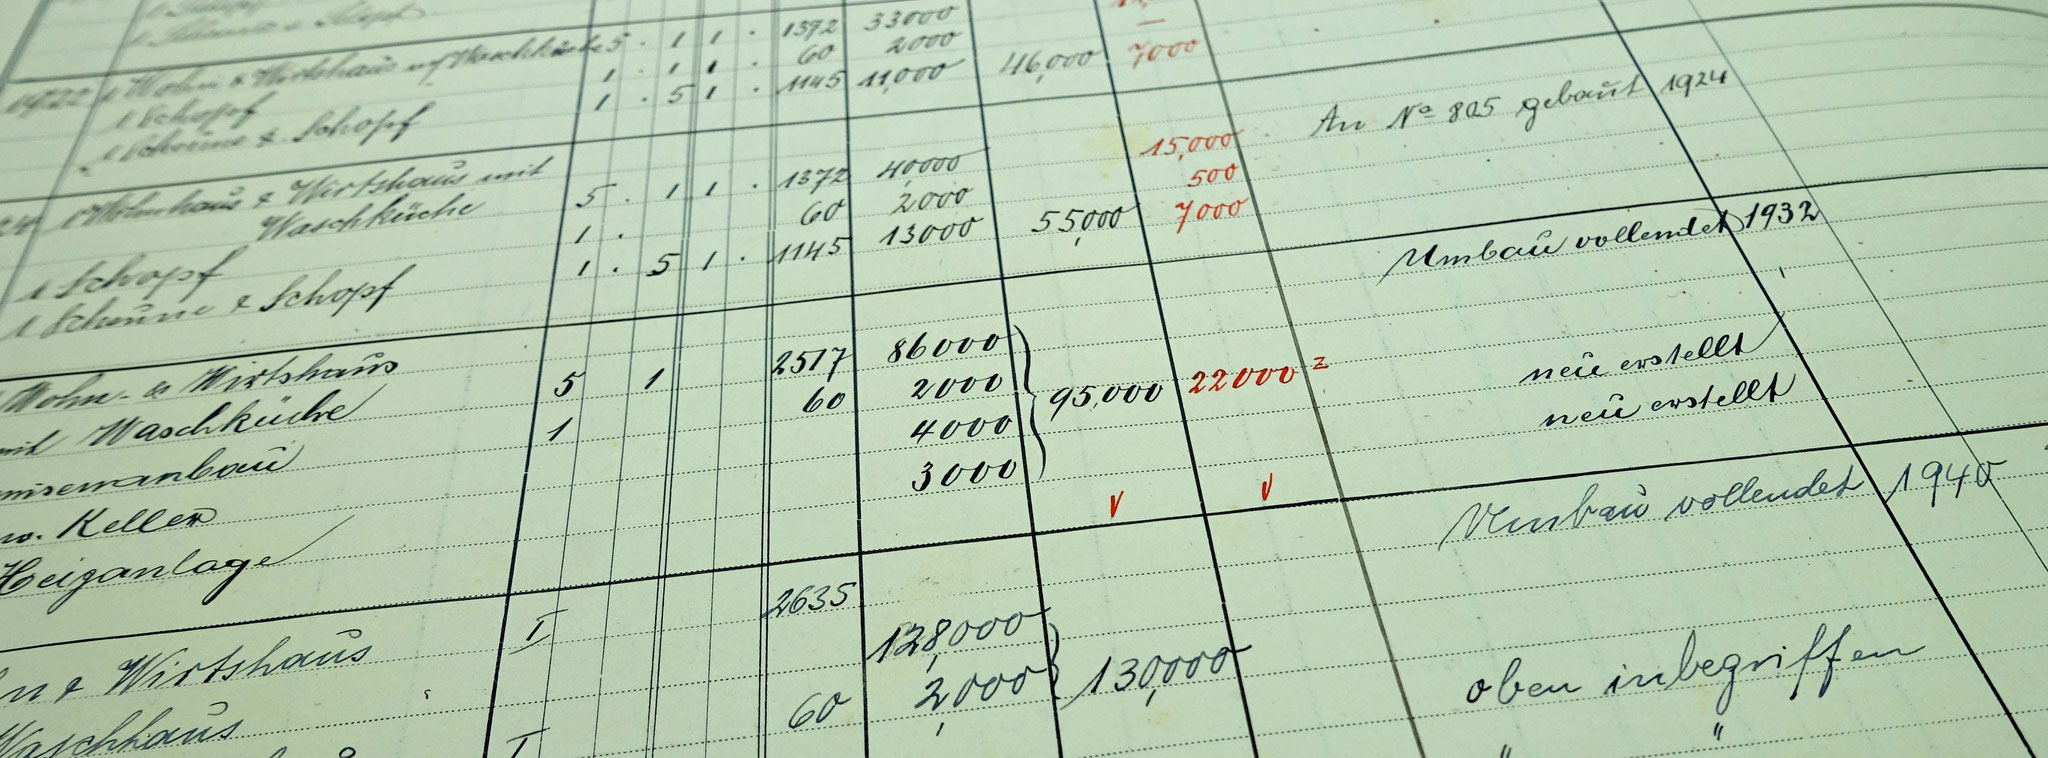 1 Wohn & Wirtshaus m/ Waschküche 5 . 1 1 . 1372 33000
1 Schopf 1 . 1 1 . 60 2000
1 Scheune & Schopf 1 . 5 1 . 1145 11,000 46,000 7000
An No 805 gebaut 1924
1 Wohnhaus & Wirtshaus mit 5 . 1 1 . 1372 40,000 15,000
Waschküche
1 Schopf 1 . 60 2000 500
1 Scheune & Schopf 1 . 5 1 . 1145 13000 55,000 7000
Umbau vollendet 1932
Wohn- & Wirtshaus 5 1 2517 86000
mit Waschküche 1 60 2000 95,000 22000
4000 neu erstellt
Keller 3000 neu erstellt
Heizanlage
Umbau vollendet 1940
& Wirtshaus I 2635 128,000
Waschhaus I 60 2,000 130,000 oben inbegriffen
" "